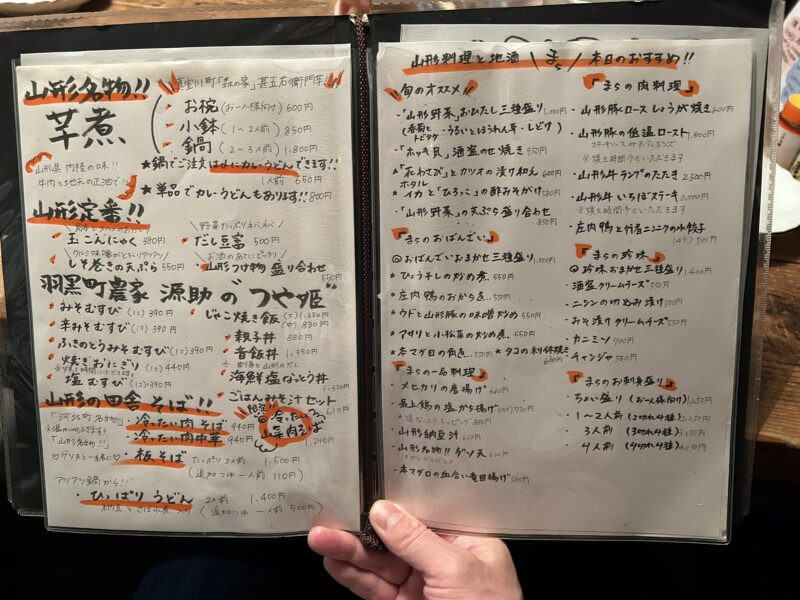 山形名物!!
芋煮
・お椀(お一人様向け)600円
・小鉢(1~2人前)850円
・鍋(2~3人前)1,800円
山形県 内陸の味!!
牛肉と地元の正油で!!
★鍋でご注文は〆にカレーうどんできます!!
1人前 650円
★単品でカレーうどんもあります!!800円
山形定番!!
・玉こんにゃく 380円
・だし豆富 500円
・しそ巻きの天ぷら 550円
お酒のあてにピッタリ
・山形つけ物 盛り合わせ 550円
羽黒町農家 源助の"つや姫"
・みそむすび(1コ)390円
・辛みそむすび(1コ)390円
・ふきのとうみそむすび(1コ)390円
・焼きおにぎり(1コ)440円
・塩むすび(1コ)390円
・じゃこ焼き飯(大)1,350円
(中)830円
・親子丼 880円
・音飯丼 1,350円
・海鮮塩なっとう丼 1,350円
・ごはんみそ汁セット 610円
山形の田舎そば!!
「河北町名物」
・冷ったい肉そば 940円
・冷ったい肉中華 940円
「山形名物!!」
・板そば 2人前 1,500円
(追加つゆ 一人前 110円)
アツアツ鍋から!!
・ひっぱりうどん 2人前 1,400円
(追加つゆ 一人前 500円)
山形料理と地酒 まら 本日のおすすめ!!
旬のオススメ
・「山形野菜」おひたし三種盛り 1,000円
・「ホッキ貝」酒盗のせ焼き 950円
・「花わさび」とカツオの漬け和え 600円
・ホタルイカと「ひろっこ」の酢みそがけ 580円
・「山形野菜」の天ぷら盛り合わせ 850円
「まらのおばんざい」
◎おばんざいおまかせ三種盛り 1,500円
★ひょうチレの炒め煮 550円
★庄内鴨のおから煮 550円
★ウドと山形豚の味噌炒め 550円
★アサリと小松菜の炒め煮 550円
★本マグロの角煮 550円
★タコの利休焼き 680円
「まらの一品料理」
・メヒカリの唐揚げ 660円
・最上鶏の塩から揚げ(4ヶ)730円
・山形納豆汁
・山形名物!!ゲソ天 600円
・本マグロの血合い竜田揚げ 580円
「まらの肉料理」
・山形豚ロースしょうが焼き
・山形豚の低温ロースト 1,800円
※焼き時間少々いただきます
・山形牛ランプのたたき 2,500円
・山形牛いちぼステーキ 2,500円
※焼き時間少々いただきます
・庄内鴨と行者ニンニクの水餃子
(4ケ)900円
「まらの珍味」
◎珍味おまかせ三種盛り 1,400円
・酒盗クリームチーズ 550円
・ニシンの切込み漬け 500円
・みそ漬クリームチーズ 550円
・カニミソ 700円
・チャンジャ 500円
「まらのお刺身盛り」
・ちょい盛り(お一人様向け)1,250円
・1~2人前(2切れ4種)2,250円
・3人前(3切れ4種)3,150円
・4人前(4切れ4種)4,050円